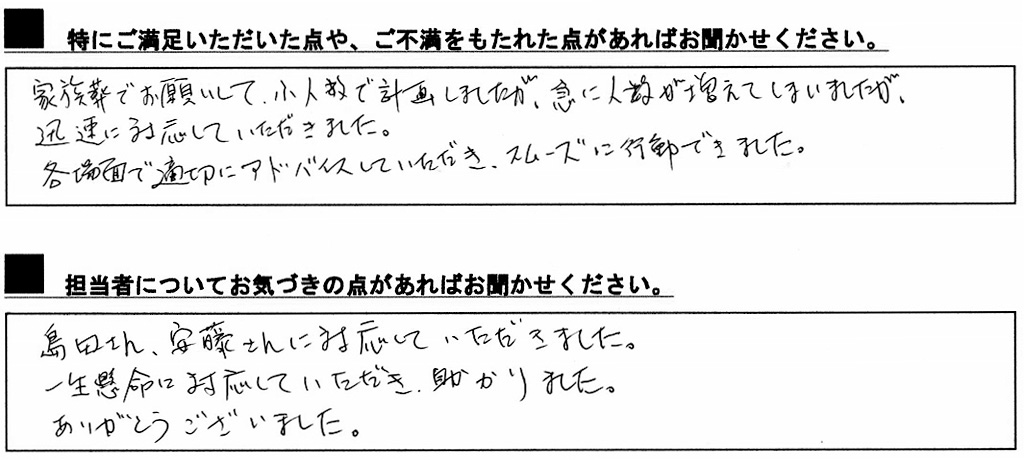 ■ 特にご満足いただいた点や、ご不満をもたれた点があればお聞かせください。
家族葬でお願いして、小人数で計画しましたが、急に人数が増えてしまいましたが、
迅速に対応していただきました。
各場面で適切にアドバイスしていただき、スムーズに行動できました。
■ 担当者についてお気づきの点があればお聞かせください。
島田さん、安藤さんに対応していただきました。
一生懸命に対応していただき、助かりました。
ありがとうございました。